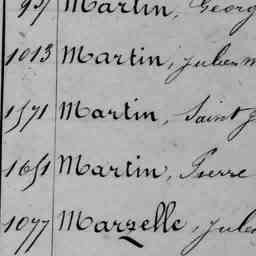 937 Martin, Georg
1013 Martin, Julien M
1571 Martin, Saint J
1651 Martin, Pierre
1077 Marzelle, Jules